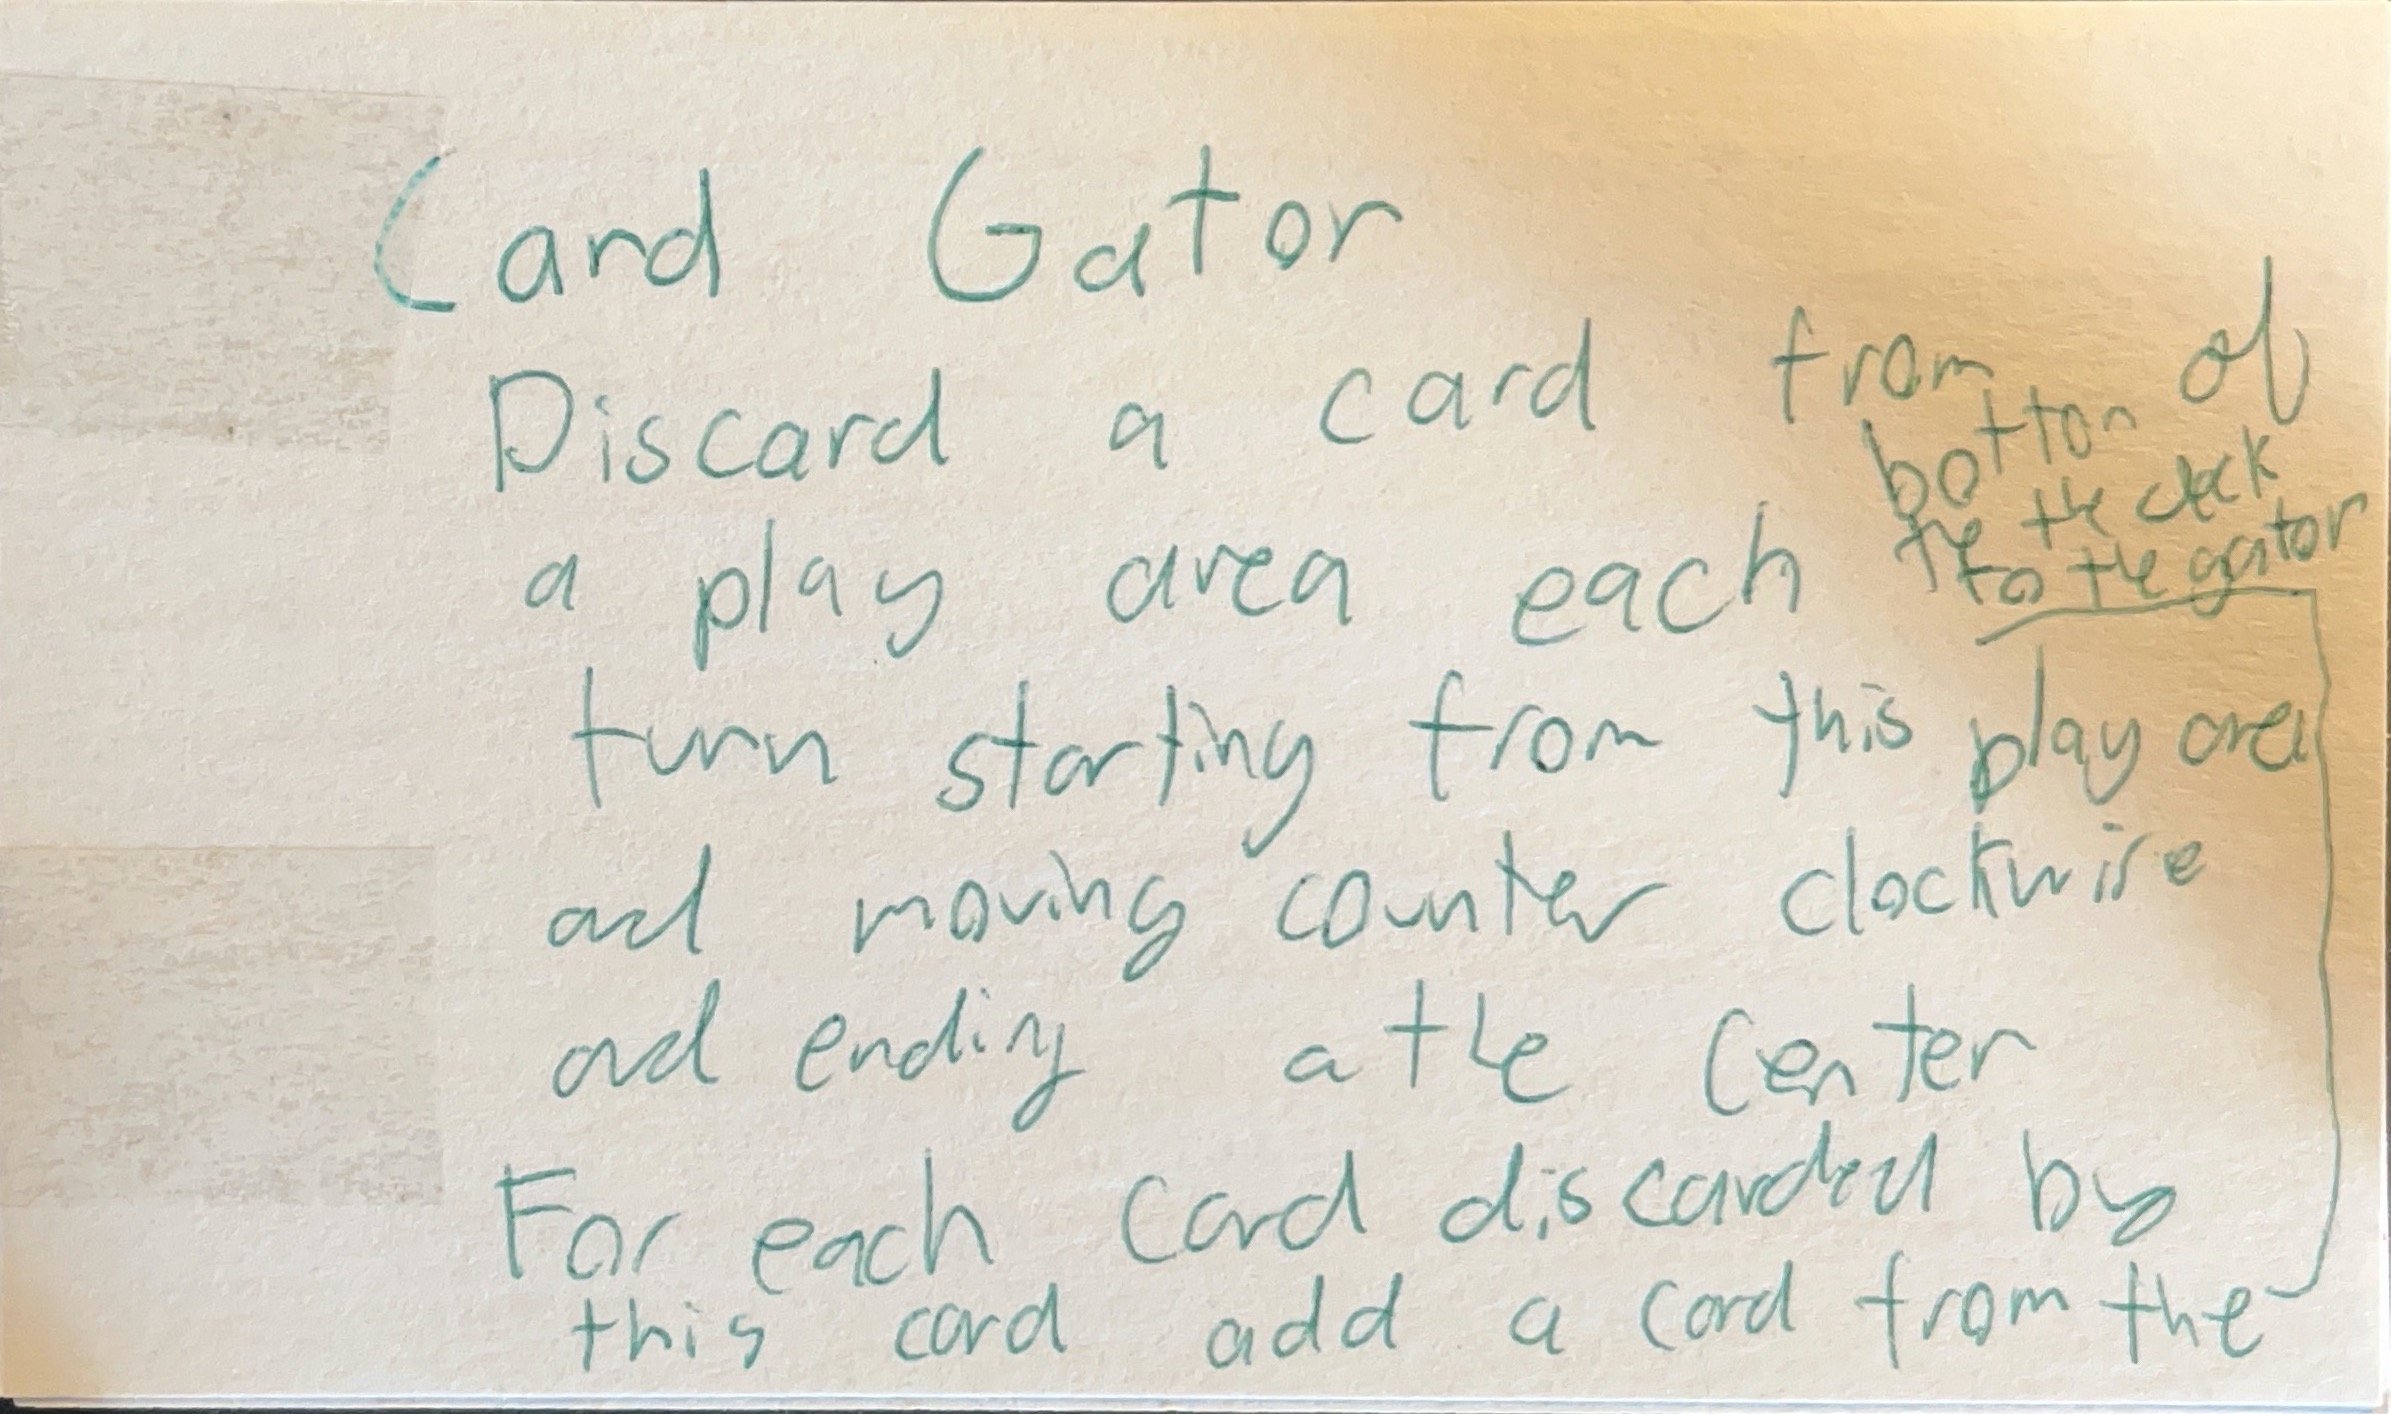 Card Gator
Discard a card from
a play area each
turn starting from this play area
ad moving counter clockwise
ad ending a the center
For each card discarded by
this card add a card from the
botton of
the the deck
to the gator